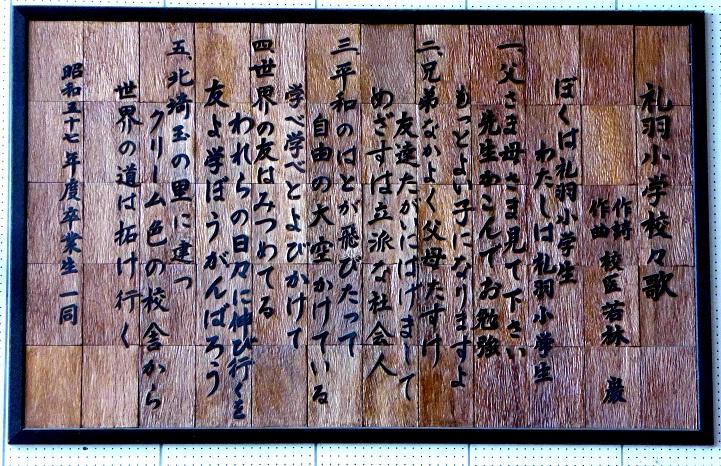 礼羽小学校々歌
作詩
作曲 校医 若林 巌
ぼくは礼羽小学生
わたしは礼羽小学生
一、父さま母さま見て下さい
先生かこんでお勉強
もっとよい子になりますよ
二、兄弟なかよく父母たすけ
友達たがいにはげまして
めざすは立派な社会人
三、平和のはとが飛びたって
自由の大空かけている
学べ学べとよびかけて
四、世界の友はみつめてる
われらの日々に伸び行くを
友よ学ぼうがんばろう
五、北埼玉の里に建つ
クリーム色の校舎から
世界の道は拓け行く
昭和五十七年度卒業生一同